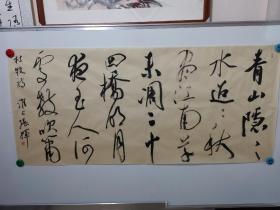 青山隐〻
水迢〻秋
尽江南草
未凋二十
四橋明月
夜玉人何
處教吹簫
杜牧詩